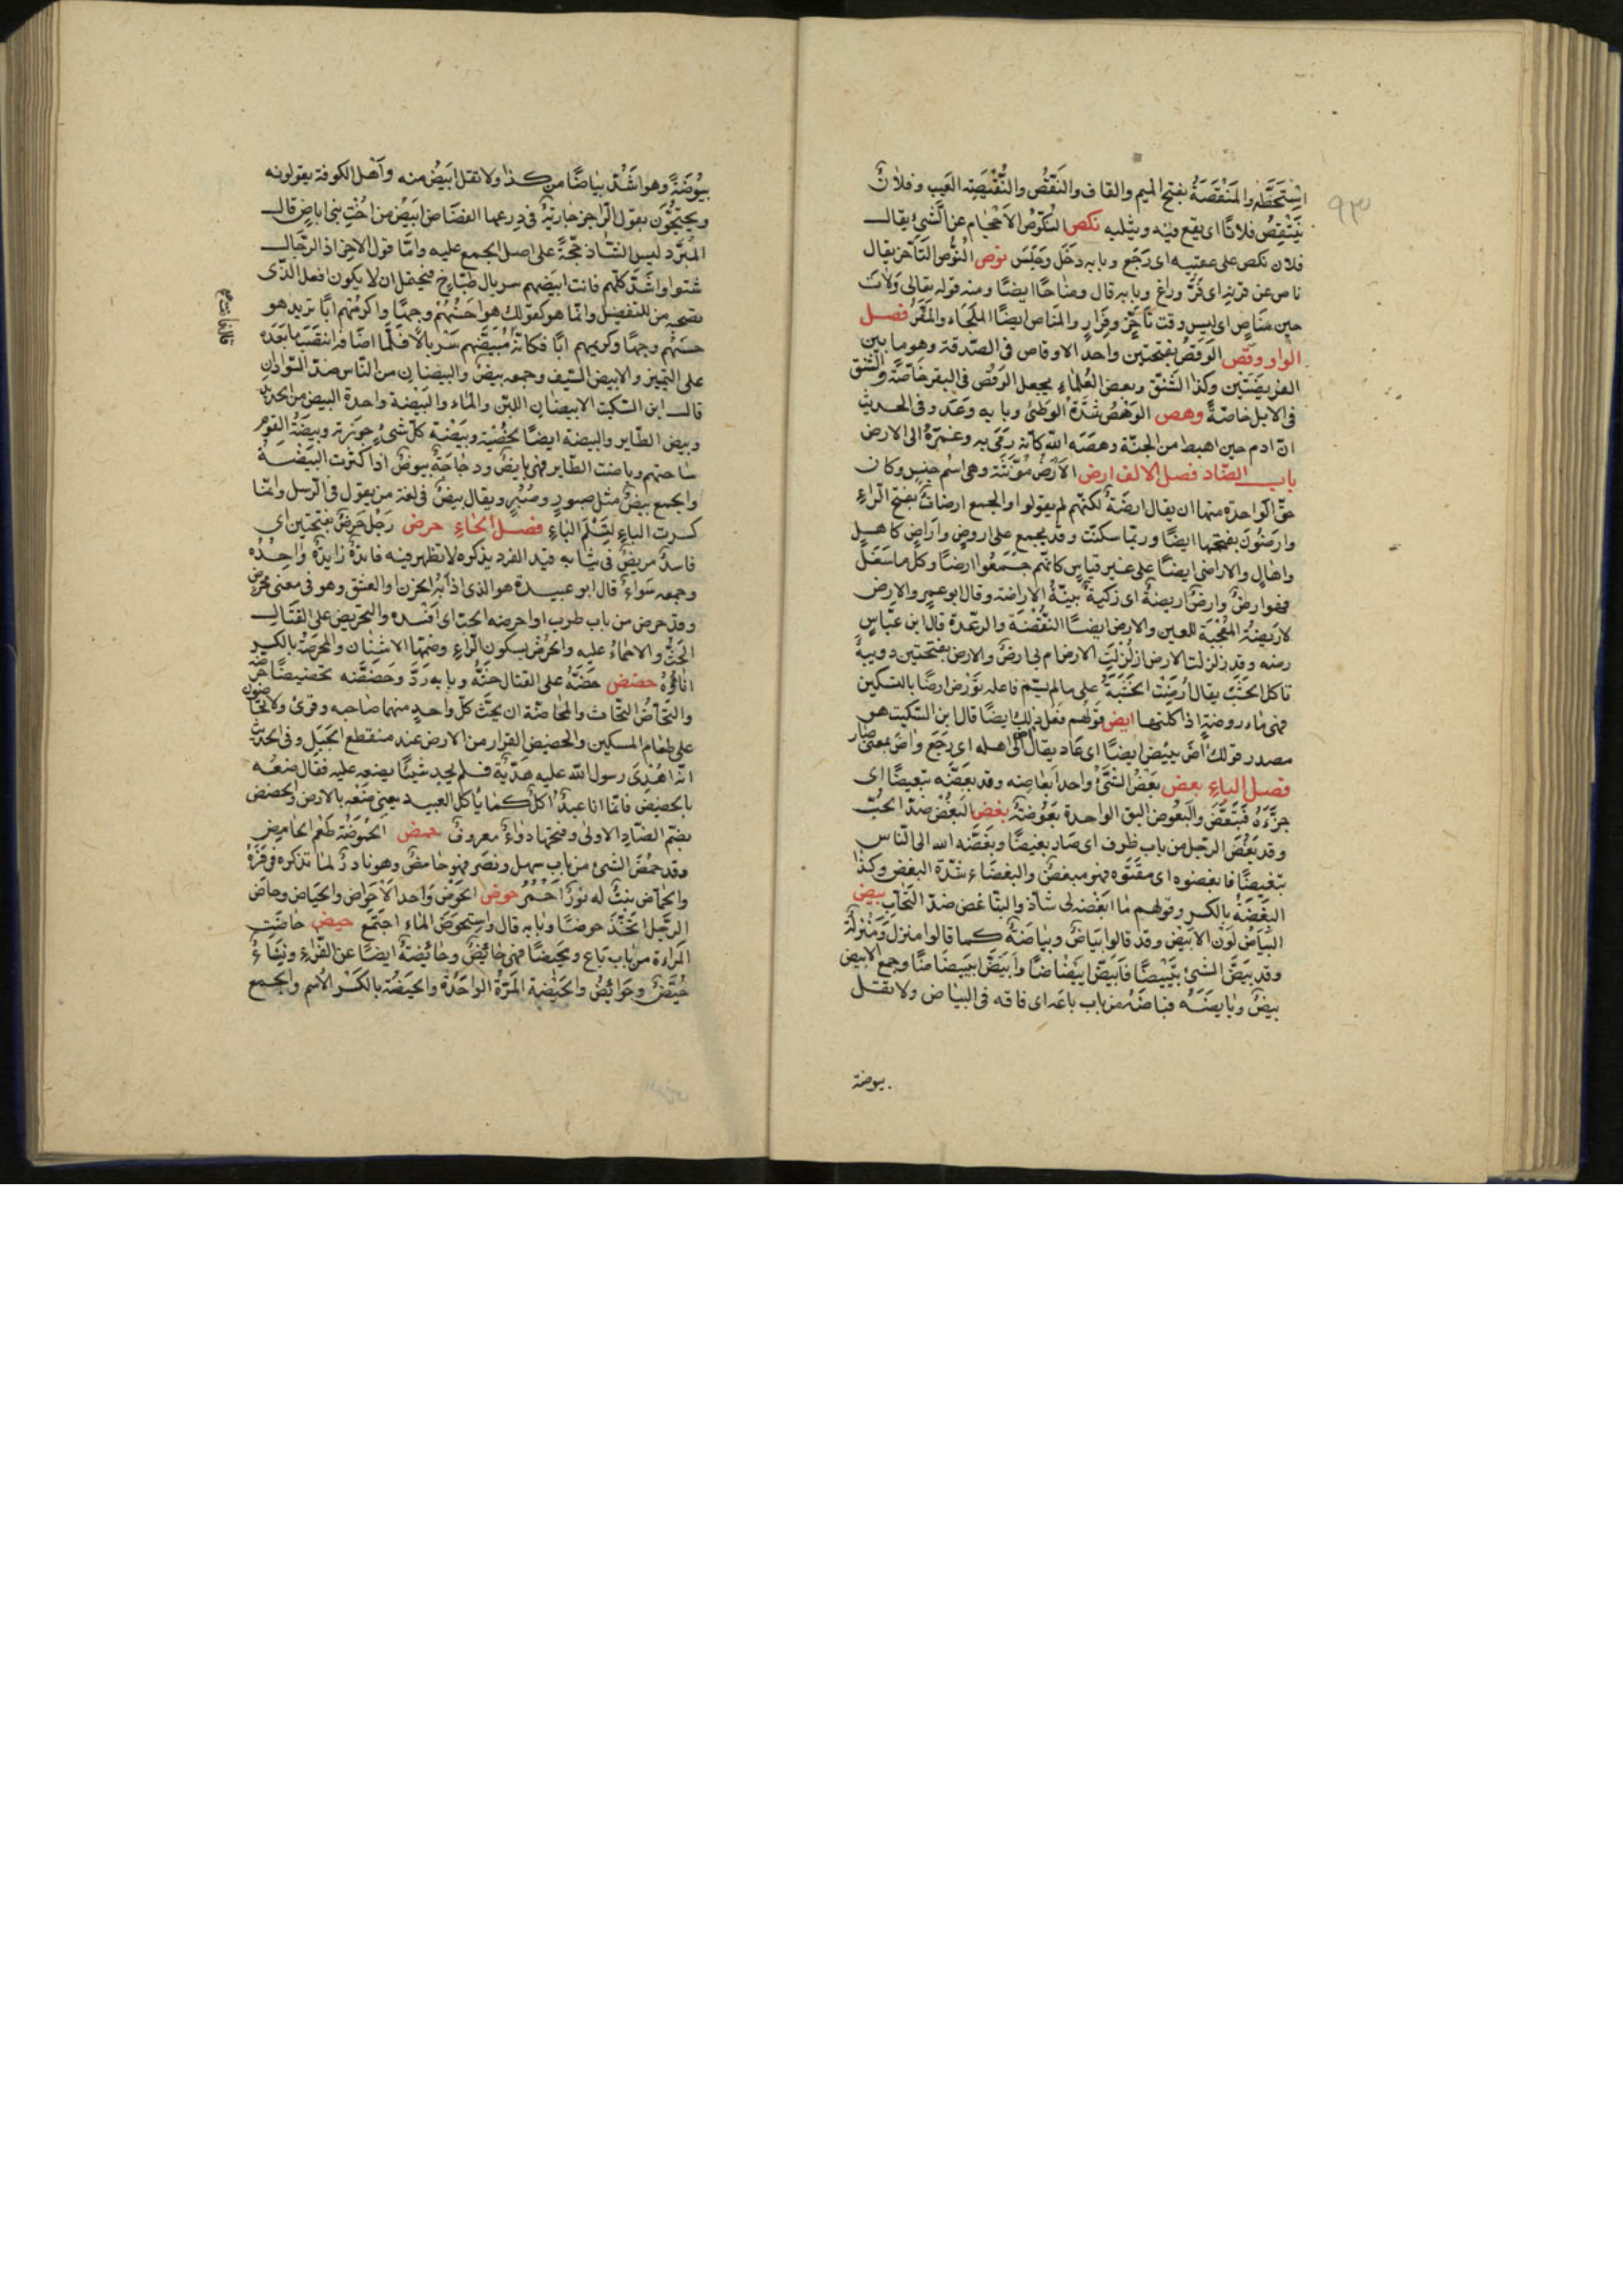 ٩٣
استحطّه والمَنْقَصَةُ بفتح الميم والقاف والنَقْصُ والنَّقِيصَة العَيب وفلانٌ
يَنْتَقِصُ فلانًا اى يقع فيه ويثلبه نكص النكوصُ الاحجام عن الشّيئ يقال
فلان نكص على عقبيه اى رَجَع وبابه دَخَلَ وجَلَسَ نوص النَّوْصُ التأخّر يقال
ناص عن قرنه اى فَرَّ وراغ وبابه قال ومناصًا ايضًا ومنه قوله تعالى وَلاتَ
حين مَناصٍ اى ليس وقت تأخّرٍ وفِرارٍ والمَناص ايضًا المَلْجَاء والمَفَرُّ فصل
الواو وقص الوَقَصُ بفتحتين واحدُ الاوقاص فى الصّدقة وهو ما بين
الفريضَتَين وكذا الشَّنَق وبعض العُلماءِ يجعل الوَقَص فى البقر خاصّةً والشنق
فى الابل خاصّةً وهص الوَهْصُ شدّة الوَطئ وبابه وَعَدَ وفى الحديث
انّ ادم حين اهبط من الجنّة وهصَه الله كانّه رَمَى به وغمزهُ الى الارض
باب الضّاد فصل الالف ارض الارضُ مؤنّثة وهى اسم جنسٍ وكان
حقّ الواحدة منها ان يقال ارضة لكنّهم لم يقولوا والجمع ارضاتٌ بفتح الرّاءِ
وارضُونَ بفتحها ايضًا وربّما سكنت وقد يجمع على اروضٍ وآراضٍ كاهلٍ
واهالٍ والاراضى ايضًا على غير قياسٍ كانّهم جَمَعُوا ارضًا وكلّ ما سَفَلَ
فهو ارضٌ وارضٌ اريضةٌ اى زكيّةٌ بيّنةُ الاراضة وقال ابو عمرٍو الارض
الاريضةُ المُعْجِبَة للعين والارض ايضًا النَّفْضَة والرعدة قال ابن عبّاسٍ
رضه وقد زلزلت الارض ازلزلت الارض ام بى ارضٌ والارض بفتحتين دويبةٌ
تاكل الخَشَبَ يقال أُرِضَتْ الخشبَةُ على ما لم يسمّ فاعله تؤرَض ارضًا بالتسكين
فهى مأروضةٌ اذا اكلتها ايض قولهم فَعَلَ ذلك ايضًا قال ابن السّكيت هو
مصدر قولك آضَ يئيض ايضًا اى عاد يقال آض الى اهله اى رَجَعَ وآضَ بمعنى صار
فصل الباءِ بعض بَعْضُ الشّئِ واحد ابعاضه وقد بعّضه تبعيضًا اى
جزّءَهُ فَتَبَعَّضَ والبَعُوض البق الواحدة بَعُوضَةٌ بغض البُغْضُ ضدّ الحُبّ
وقد بَغُضَ الرجل من باب ظرف اى صار بغيضًا وبَغَّضه الله الى النّاس
تبغيضًا فابغضوه اى مقتوه فهو مبغضٌ والبغضَاء شدّة البغض وكذا
البِغْضَةُ بالكسر وقولهم ما ابغَضه لى شاذّ والتباغض ضدّ التّحابّ بيض
البَيَاضُ لَوْن الابيض وقد قالوا بَيَاضٌ وبَياضَةٌ كما قالوا منزِلٌ ومَنْزِلَةٌ
وقد بيّضَ الشئ تَبْييضًا فابيَضّ ابيضاضًا وابيَاضّ ابييضاضًا وجمع الابيض
بيضٌ وبايضَهُ فباضَهُ من باب باعَ اى فاقه فى البَياض ولا تقل
بيوضة
بيُوضَةً وهو اشَدُّ بياضًا من كذا ولا تقل ابيَضُ منه واَهْل الكوفة يقولونه
ويحتجُّون بقول الرّاجز جاريةٌ فى درعها الفضفاض ابيَضُ من اُخْتِ بنى اباضٍ قال
المُبَرّد ليس الشّاذ بحجّةٍ على اصلٍ اجمع عليه وامّا قول الاخر اذا الرّجال
شتوا واشتدّ اكلهم فانت ابيضهم سربال طبّاخٍ فيحتمل ان لا يكون افعل الّذى
تصحبه من للتفضيل وانّما هو كقولك هو احسنُهُم وجهًا واكرمُهم ابًا تريد هو
حسنهم وجهًا وكريمهم ابًا فكانّه قال مُبْيَضُّهم سَرْبالاً فلمّا اضافه انتصَبَ ما بَعدَه
على التميز والابيض السّيف وجمعه بيضٌ والبيضان من النّاس ضدّ السّودان
قال ابن السّكيت الابيضان اللبن والماء والبَيضة واحدة البيض من الحديد
وبيض الطّاير والبيضة ايضًا الخُصْيَة وبَيْضَة كلّ شىءٍ حوزته وبيضَةُ القوم
ساحتهم وباضت الطّاير فهى بايضٌ ودجاجَةٌ بيوضٌ اذا اكثرت البَيضَ
والجمع بُيُضٌ مثل صبورٍ وصُبُرٍ ويقال بيضٌ فى لغة من يقول فى الرّسل وانّما
كسرت الباءِ لتَسْلَم الياءِ فصل الحاءِ حرض رَجُلٌ حَرَضٌ بفتحتين اى
فاسدٌ مريضٌ فى ثيابه واحِدُهُ
وجمعه سواءٌ قال ابو عبيدة هو الّذى اذابَهُ الحزن او العشق وهو فى معنى مُحْرَضٍ
وقد حرض من باب طرب واحرضه الحبّ اى افسَده والتحريض على القتال
الحَثُّ والاحماءُ عليه والحُرْضُ بسكون الرّاءِ وضمّها الاشنان والمِحْرَضَةُ بالكسر
اناؤُهُ حضض حَضَّهُ على القتال حثّهُ وبابه رَدَّ وحَضَّضَه تحضيضًا حرّضه
والتّحاضُّ التّحاث والمُحاضّة ان يحثّ كلّ واحدٍ منهما صاحبه وقرئ ولا تحاضّون
على طعام المسكين والحضيض القرار من الارض عند منقطع الجبَل وفى الحديث
انّه اُهْدِىَ رسول الله عليه هديّة فلم يجد شيئًا يضعه عليه فقال ضعْه
بالحضيض فانّما انا عبدٌ اكل كما يأكل العبيد يعنى ضَعْهُ بالارض والحضض
بضم الضّادِ الاولى وفتحها دواءٌ معروفٌ حمض الحُمُوضَةُ طَعْم الحامض
وقد حَمُضَ الشئ من باب سهل ونصر فهو حامضٌ وهو نادرٌ لما نذكره فى فَرُهَ
والحُمّاض نبتٌ له نَوْرٌ احْمَرُ حوض الحَوْضُ واحد الاَحْوَاض والحيَاض وحاض
الرّجل اتّخَذَ حوضًا وبابه قال واستحوَضَ الماءُ اجتمَعَ حيض حاضَتِ
المرأة من باب بَاع ومحيضًا فهى حائِضٌ وحائِضَةٌ ايضًا عن الفرّاءِ ونِسَاءٌ
حُيَّضٌ وحوَائِضُ والحَيْضة المَرّةُ الواحدة والحيضَة بالكسر الاسم والجمع